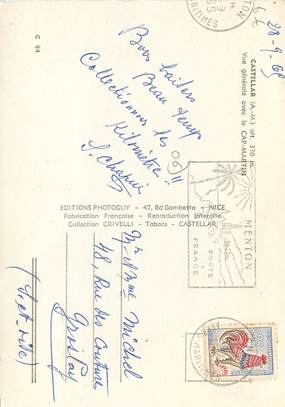 28-9-65
CASTELLAR (A.-M.) alt. 370 m.
Vue générale avec le CAP-MARTIN
C 94
Bons baisers
Beau temps
Collectionnons les
Kilomètres !!
S. Chapuis
EDITIONS PHOTOGUY - 47, Bd Gambetta - NICE
Fabrication Française - Reproduction Interdite
Collection CRIVELLI - Tabacs - CASTELLAR
MENTON
POSTE
FRANCE
Mr et Mme Michel
48, Rue des
(S. et Oise)